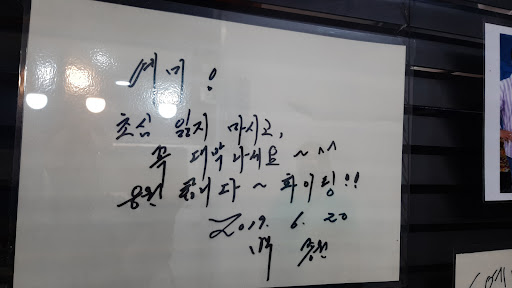 초심 잃지 마시고,
꼭 대박나세요 ~ ^^
응원 합니다 ~ 파이팅!!
2019. 6. 20
백 종원